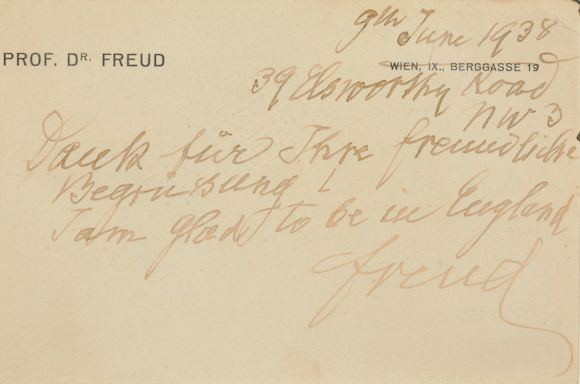 9th June 1938
PROF. DR. FREUD
WIEN, IX., BERGGASSE 19
39 Elsworthy Road
NW 3
Dank für Ihre freundliche
Begrüssung!
I am glad to be in England
Freud